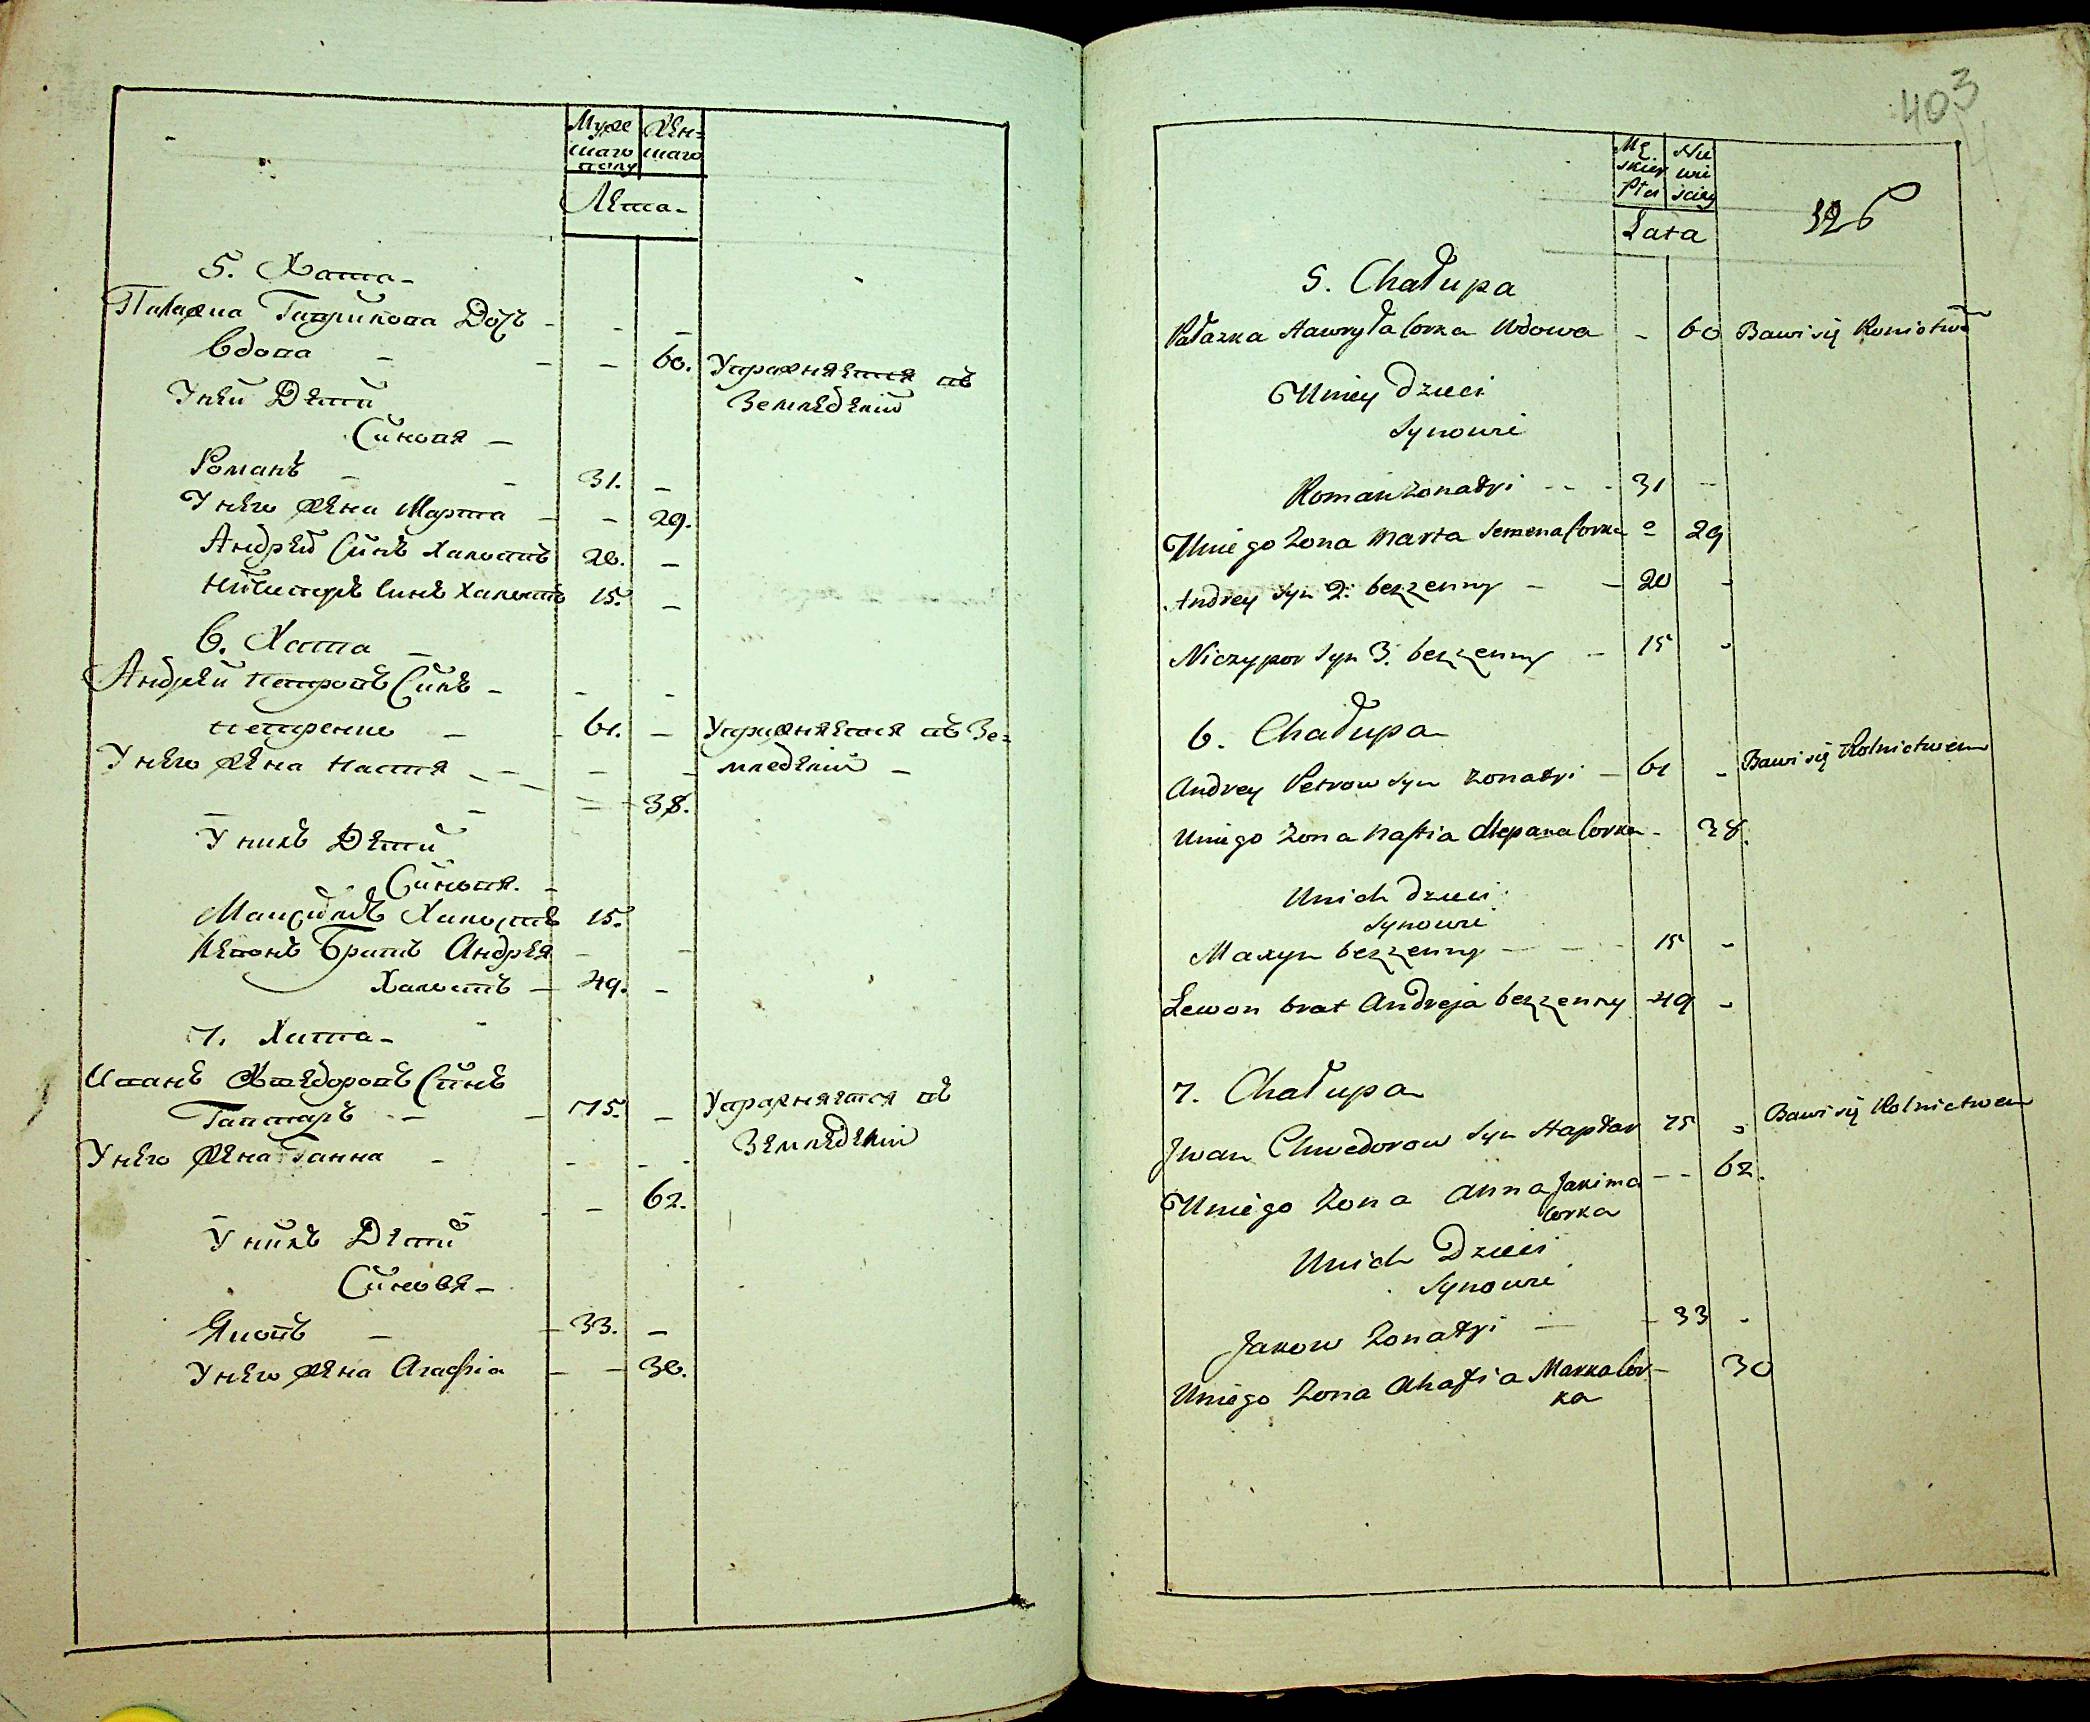 Муже
скаго
полу
Жен=
скаго
Лѣта.
5. Хата.
Палажка Гаврилова Дочь
Вдова 60. Упражняется въ
Земледѣлій
У ней Дѣти
Синовя
Романъ 31.
У него жена Марта 29.
Андрей Синъ Халостъ 20.
Ничипоръ Синъ Халостъ 15.
6. Хата
Андрей Петровъ Синъ
Петренко 61. Упражняется въ Зе=
У него жена Настя мледѣлій
38.
У нихъ Дѣти
Синовя.
Максимъ Халостъ 15.
Левонъ Братъ Андрея
Халостъ 49.
7. Хата
Иванъ Хведоровъ Синъ
Гаптаръ 75. Упражняется въ
У него жена Ганна Земледѣлій
62.
У нихъ Дѣти
Синовя
Яковъ 33.
У него жена Агафія 30.
403
4
Mę
skiey
Płci
Nie
wie
sciey
Lata
326
5. Chałupa
Pałazka Hawryła Corka Wdowa - 60 Bawi się Rolnictwem
U niey Dzieci
Synowie
Roman żonaty 31
U niego żona Marta Semena Corka 29
Andrey Syn 2. bezżenny 20
Niczypor Syn 3. bezżenny 15
6. Chałupa
Andrey Petrow Syn żonaty 61 Bawi się Rolnictwem
U niego żona Nastia Stepana Corka 38.
U nich Dzieci
Synowie
Maxym bezżenny 15
Lewon brat Andreja bezżenny 49
7. Chałupa
Jwan Chwedorow Syn Haptar 75 Bawi się Rolnictwem
U niego żona Anna Jakima 62.
Corka
U nich Dzieci
Synowie
Jakow żonaty 33
U niego żona Ahafia Marka Cor- 30
ka